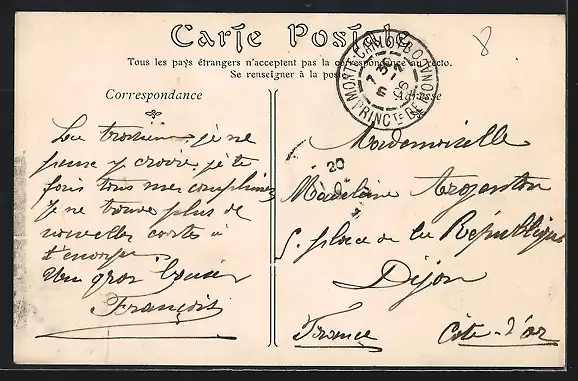 Carte Postale
Tous les pays étrangers n'acceptent pas la correspondance au recto.
Se renseigner à la poste
8
MONTE-CARLO
PRINCTE DE MONACO
Correspondance
Adresse
La troisième, je ne
peux y croire, je te
fais tous mes compliments
Je ne trouve plus de
nouvelles cartes à
t'envoyer
Un gros baiser
François
Mademoiselle
20
Madeleine Argenton
5. place de la République
Dijon
France Côte-d'or